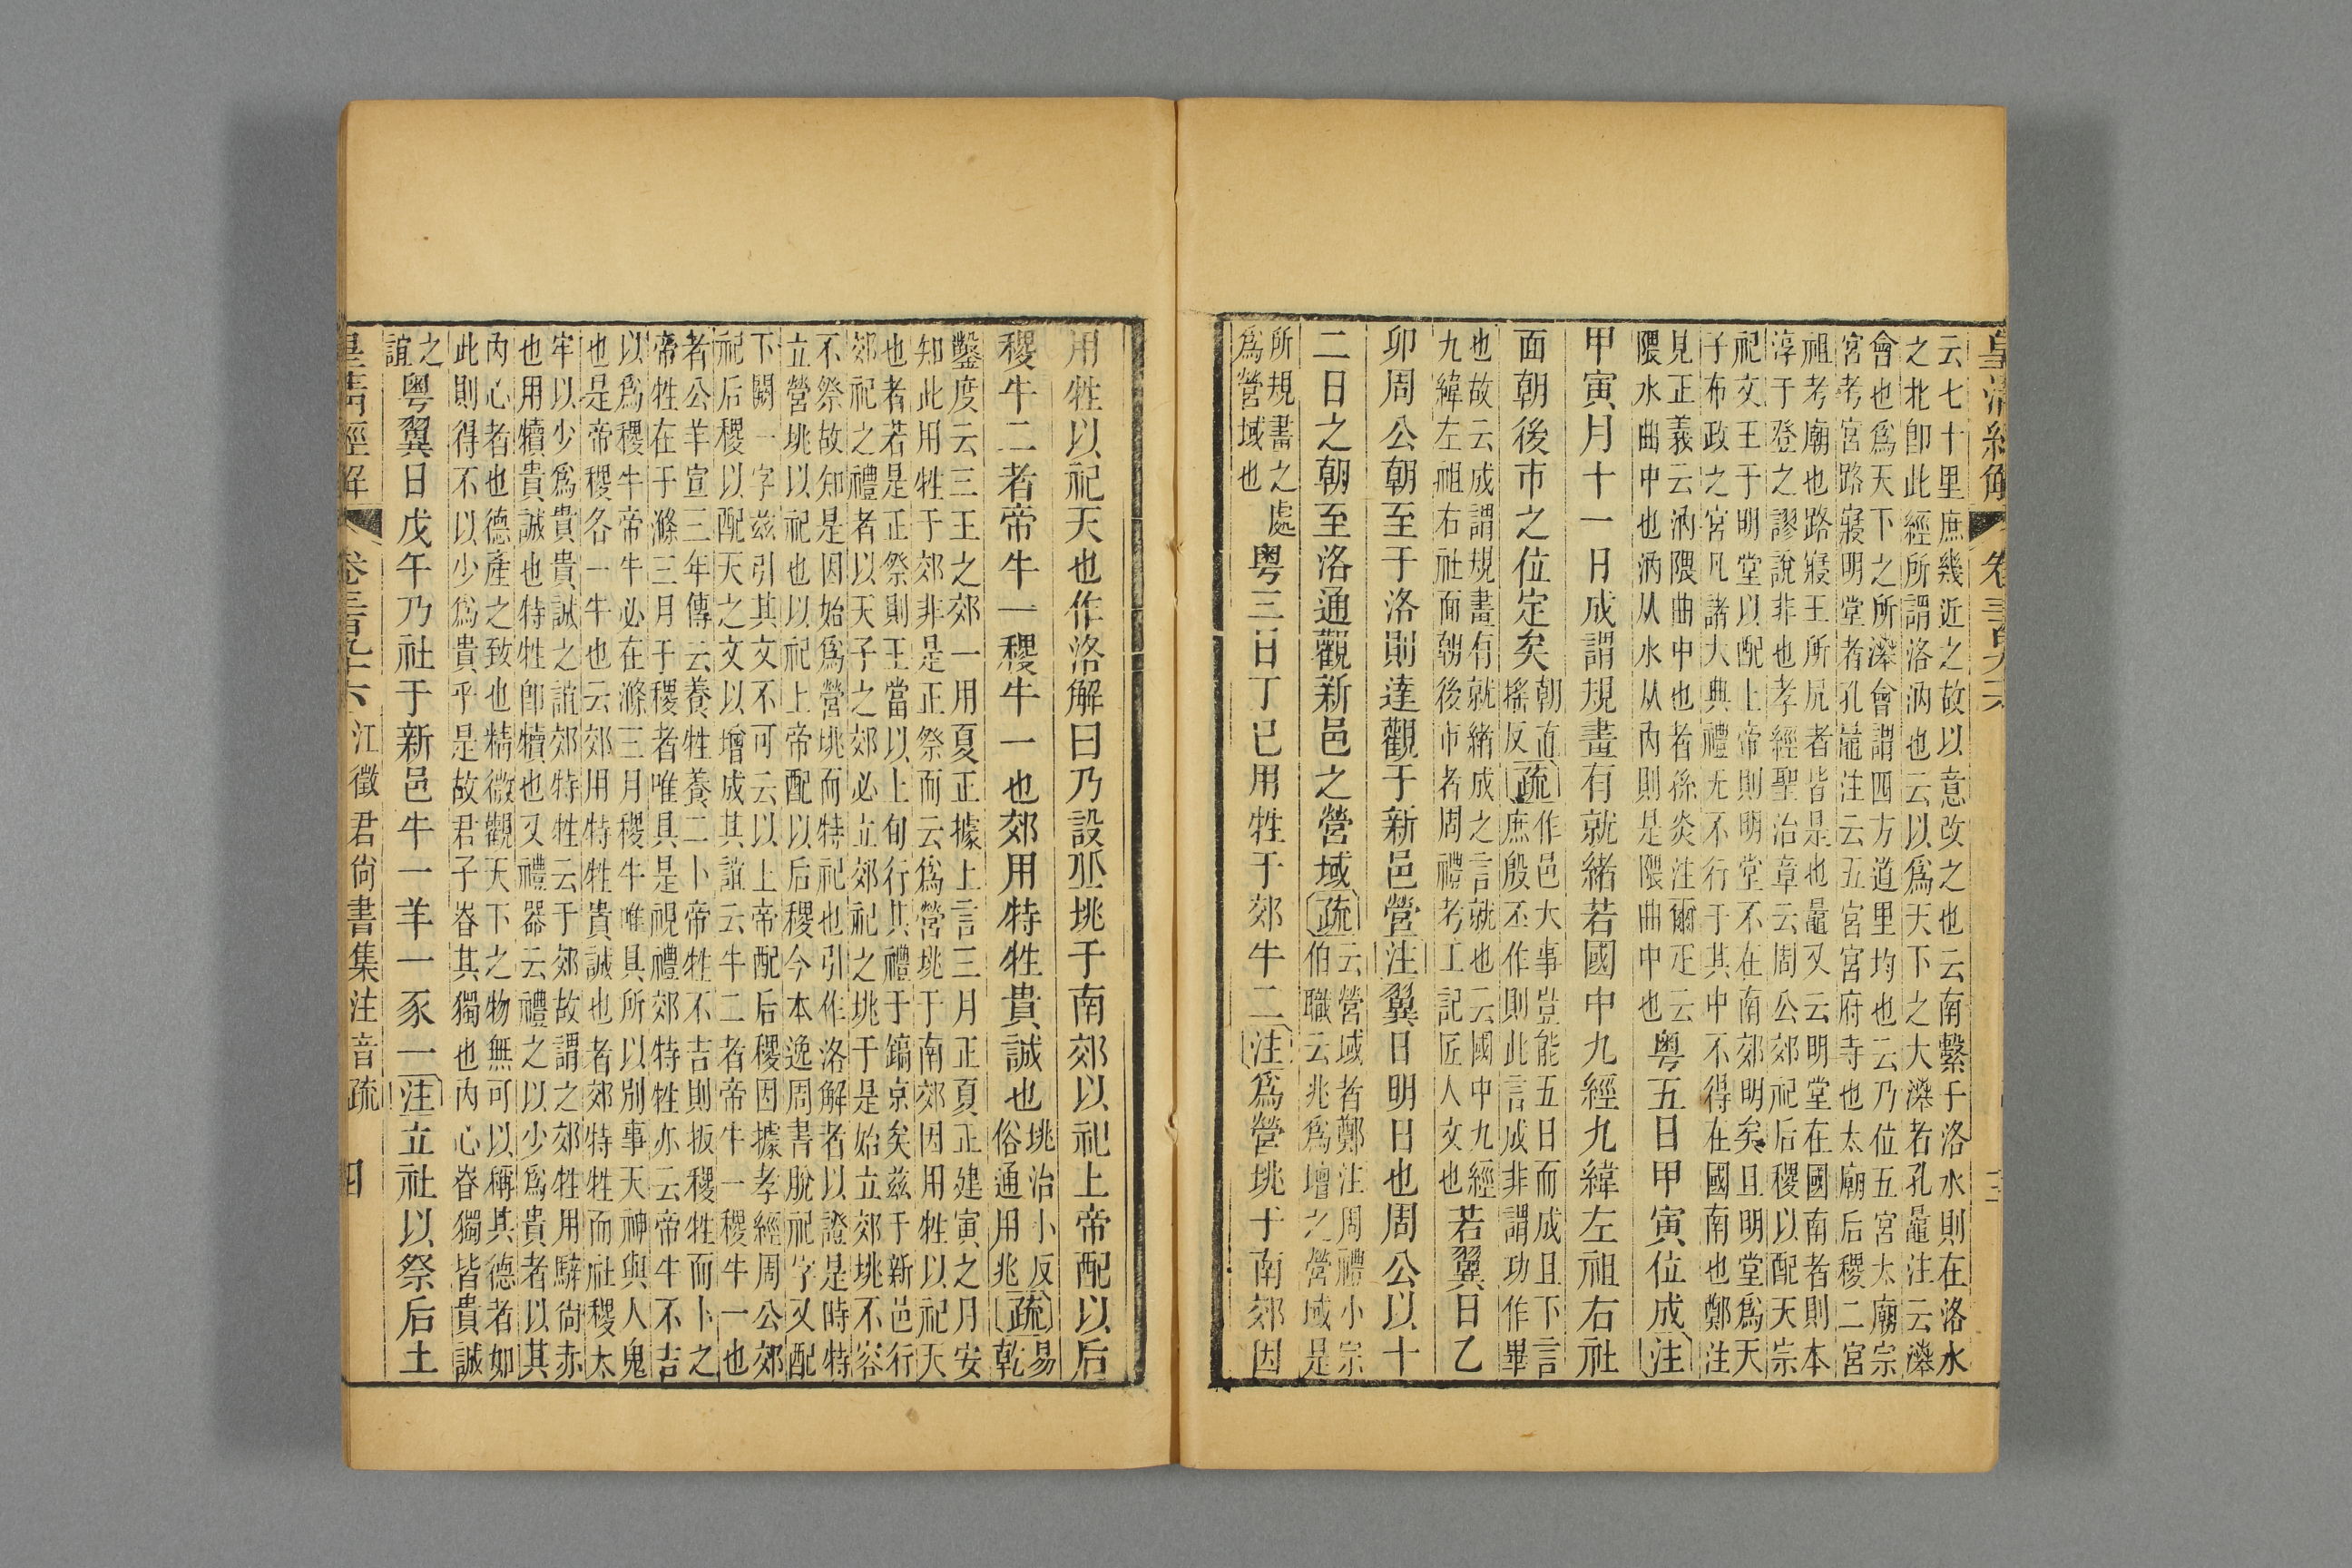 皇清經解 卷三百九十六 三
云七十里庶幾近之故以意改之也云南繫于洛水則在洛水
之北卽此經所謂洛汭也云以爲天下之大湊者孔鼂注云湊
會也爲天下之所湊會謂四方道里均也云乃位五宮太廟宗
宮考宮路寢明堂者孔鼂注云五宮宮府寺也太廟后稷二宮
祖考廟也路寢王所凥者皆是也鼂又云明堂在國南者則本
淳于登之謬說非也孝經聖治章云周公郊祀后稷以配天宗
祀文王于明堂以配上帝則明堂不在南郊明矣且明堂爲天
子布政之宮凡諸大典禮无不行于其中不得在國南也鄭注
見正義云汭隈曲中也者孫炎注爾疋云
隈水曲中也汭从水从內則是隈曲中也
粵五日甲寅位成注
甲寅月十一日成謂規畫有就緒若國中九經九緯左祖右社
面朝後市之位定矣
朝直
搖反
疏
作邑大事豈能五日而成且下言
庶殷丕作則此言成非謂功作畢
也故云成謂規畫有就緒成之言就也云國中九經
九緯左祖右社面朝後市者周禮考工記匠人文也
若翼日乙
卯周公朝至于洛則達觀于新邑營注翼日明日也周公以十
二日之朝至洛通觀新邑之營域疏
云營域者鄭注周禮小宗
伯職云兆爲壇之營域是
所規畫之處
爲營域也
粵三日丁巳用牲于郊牛二注爲營垗于南郊因
用牲以祀天也作洛解曰乃設丠垗于南郊以祀上帝配以后
稷牛二者帝牛一稷牛一也郊用特牲貴誠也
垗治小反
俗通用兆
疏
易
乾
鑿度云三王之郊一用夏正據上言三月正夏正建寅之月安
知此用牲于郊非是正祭而云爲營垗于南郊因用牲以祀天
也者若是正祭則王當以上旬行其禮于鎬京矣茲于新邑行
郊祀之禮者以天子之郊必立郊祀之垗于是始立郊垗不容
不祭故知是因始爲營垗而特祀也引作洛解者以證是時特
立營垗以祀也以祀上帝配以后稷今本逸周書脫祀字又配
下闕一字茲引其文不可云以上帝配后稷因據孝經周公郊
祀后稷以配天之文以增成其誼云牛二者帝牛一稷牛一也
者公羊宣三年傳云養牲養二卜帝牲不吉則扳稷牲而卜之
帝牲在于滌三月于稷者唯具是視禮郊特牲亦云帝牛不吉
以爲稷牛帝牛必在滌三月稷牛唯具所以別事天神與人鬼
也是帝稷各一牛也云郊用特牲貴誠也者郊特牲而社稷太
牢以少爲貴貴誠之誼郊特牲云于郊故謂之郊牲用騂尙赤
也用犢貴誠也特牲卽犢也又禮器云禮之以少爲貴者以其
內心者也德產之致也精微觀天下之物無可以稱其德者如
此則得不以少爲貴乎是故君子眘其獨也內心眘獨皆貴誠
之
誼
粵翼日戊午乃社于新邑牛一羊一豕一注立社以祭后土
皇清經解 卷三百九十六 江徵君尙書集注音疏 四